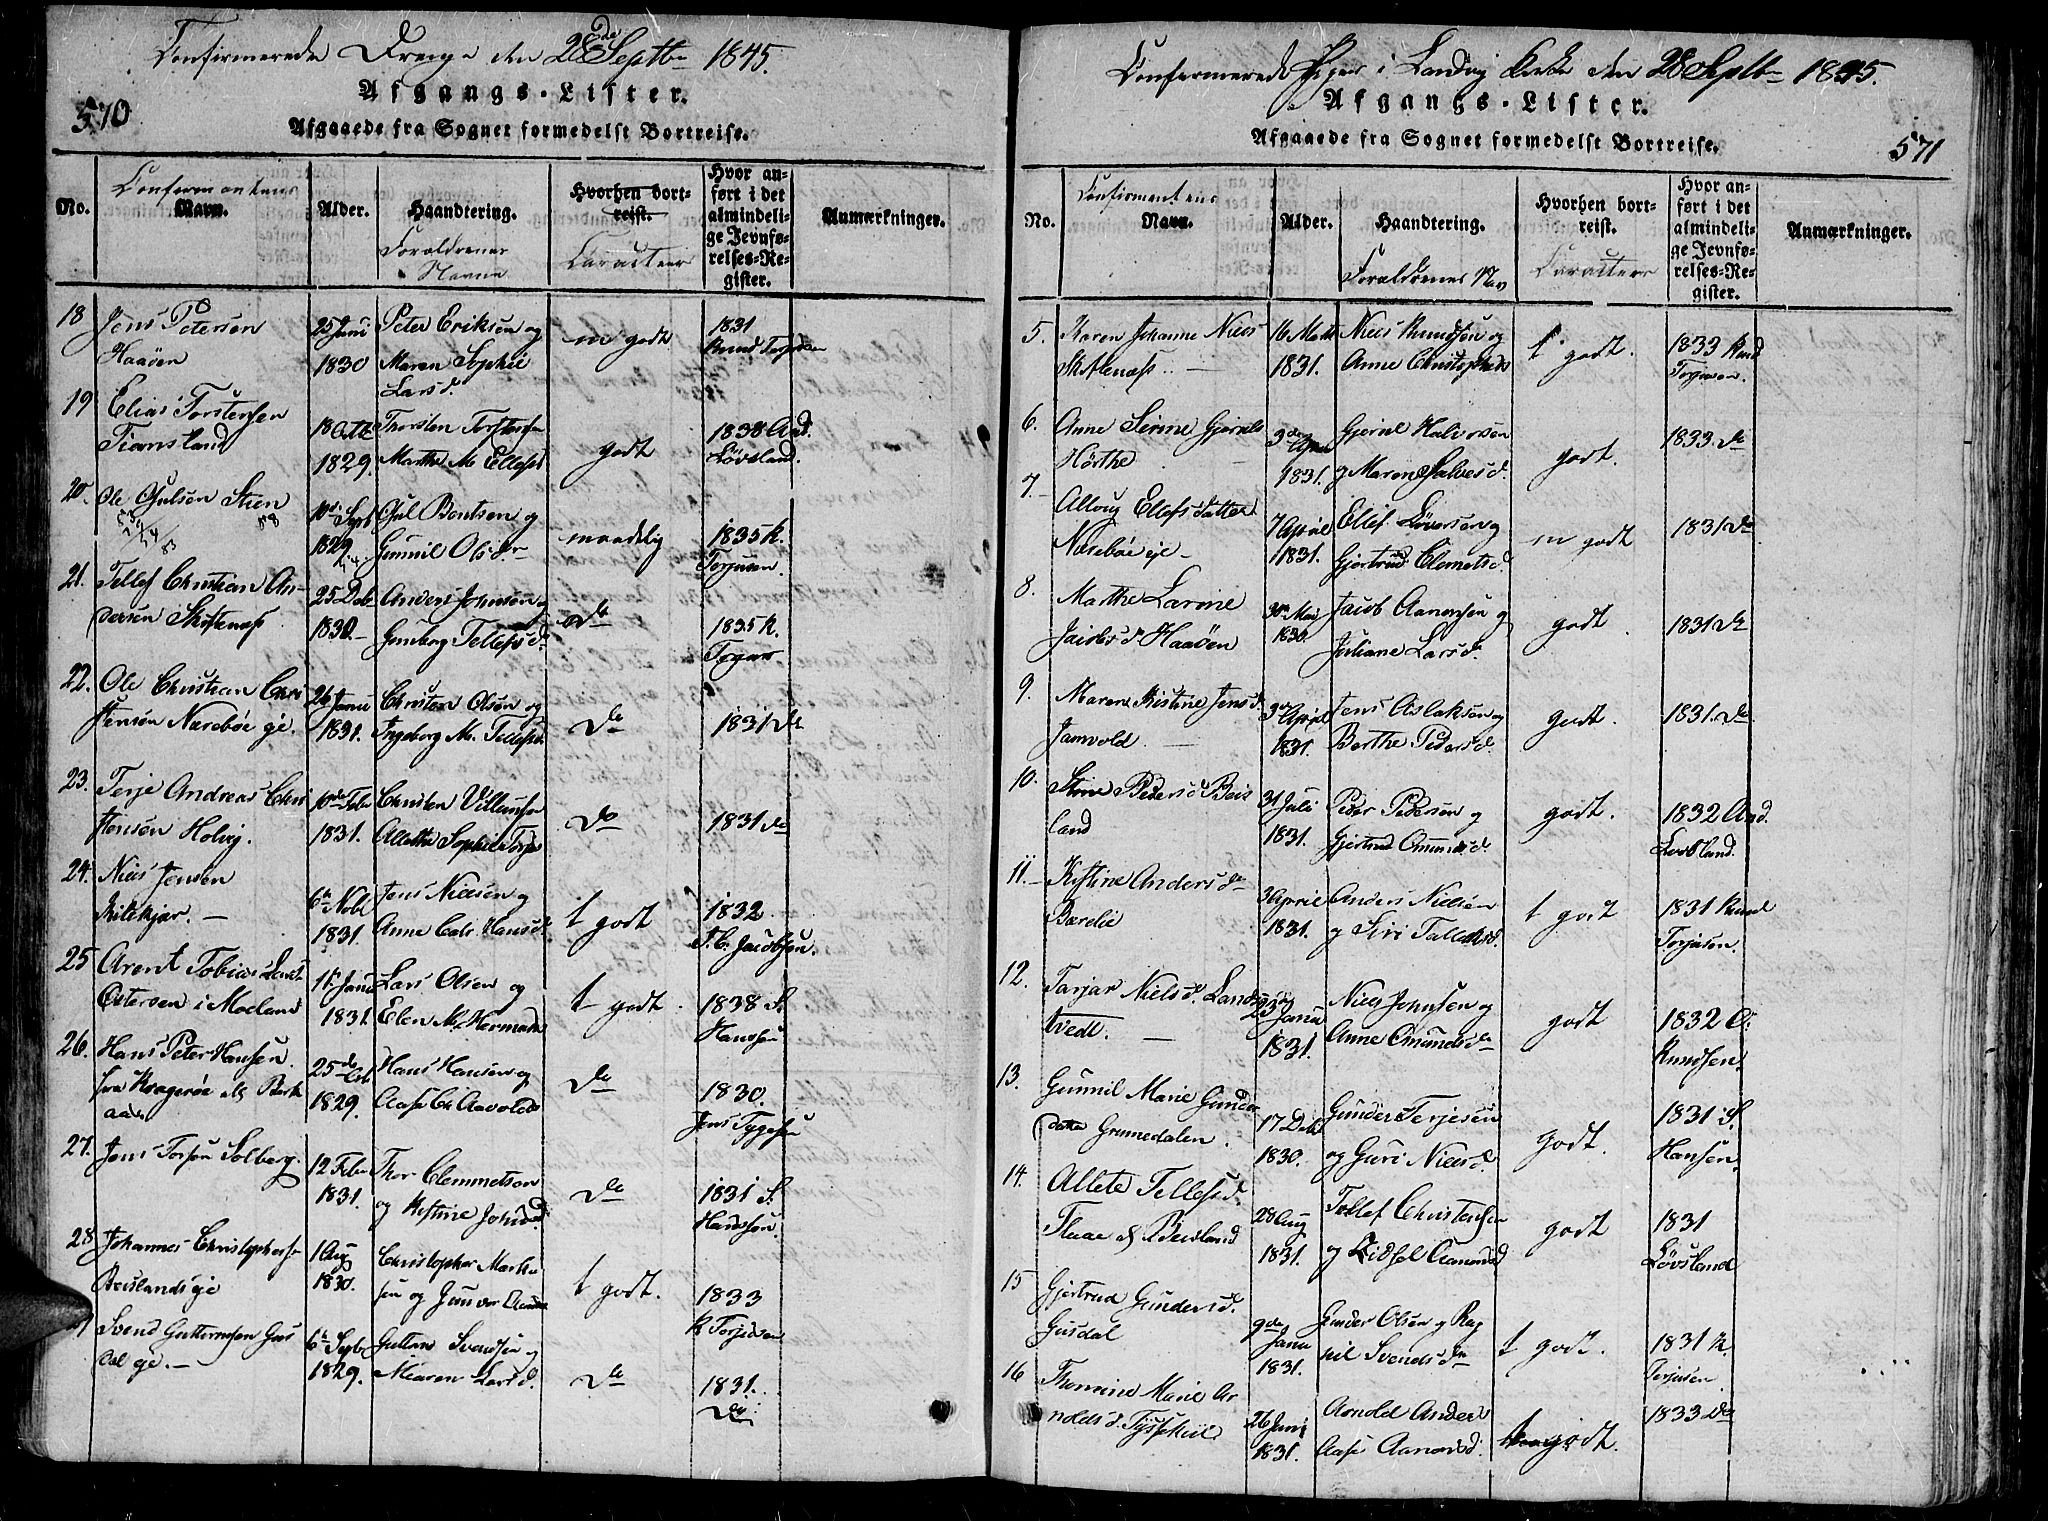 Confirmerede Drenge den 28de Septbr 1845.
Afgangs-Lister.
570
Afgaaede fra Sognet formedelst Bortreise.
No.
Confirmantens
Navn.
Alder.
Haandtering.
Forældrenes
Navne
Hvorhen bort-
reist.
Caracteer
Hvor an-
ført i det
almindeli-
ge Jevnfø-
relses-Re-
gister.
Anmærkninger.
18 Jens Petersen
Haaøen
25 Juni
1830
Peter Eriksen og
Maren Sophie
Larsd.
m godt
1831
Knud Torjusen
19 Elias Torstensen
Tiønsland
18 Octb
1829.
Thorsten Torstensen
Marthe M. Ellefsd
godt
1838 And.
Løvsland.
20. Ole Gjulsen Steen
10de Sept
1829
Gjul Bentsen og
Gunnil Olsdr
maadelig
1835 K.
Torjusen.
21. Tellef Christian An-
dersen Skiftenæs
25 Deb
1830.
Anders Johnsen og
Gunborg Tellefsd.
do
1835 K.
22. Ole Christian Chri
stensen Næsebøe eje.
26 Janu
1831.
Christen Olsen og
Ingeborg M. Tellefsd
do
1831 do
23. Terje Andreas Chri
stensen Holvig.
10de Febr
1831.
Christen Villumsen
Allethe Sophie Terjes
do
1831 do
24. Niels Jensen
6te Nobr
1831.
Jens Nielsen og
Anne Cath. Hansd.
t godt
1832
J. C. Jacobsen.
25 Arent Tobias Lars.
Ostersen i Moeland
11. Janu
1831.
Lars Olsen og
Elen M. Hermansd
t godt.
1838 S.
Hanssen
26. Hans Peter Hansen.
fra Kragerøe
25de Oct
1829.
Hans Hansen og
Aase Ch Aavoldsd
do
1830.
Jens Tygesen
27. Jens Torsen Solberg.
12 Febr
1831.
Thor Clemmetsen
og Kistine Johnsd
do
1831 S.
Hanssen.
28 Johannes Christophersen
Beislands eje
1 Aug
1830.
Christopher Marku
sen og Gunvor
t godt.
1833
K Torjusen
29 Svend Guttormsen Gus
dal eje.
6te Septb
1829.
Guttorm Svendsen og
Maren Larsd.
do
1831.
do
Confirmerede Piger i Landvig Kirke den 28 Septbr 1845.
Afgangs-Lister.
571
Afgaaede fra Sognet formedelst Bortreise.
No.
Confirmantens
Navn.
Alder.
Haandtering.
Forældrenes Nav
Hvorhen bort-
reist.
Caracteer
Hvor an-
ført i det
almindeli-
ge Jevnfø-
relses-Re-
gister.
Anmærkninger.
5. Karen Johanne Niels
Skiftenæs
16 Marts
1831.
Niels Knudsen og
Anne Christophersd
t godt.
1833 Knud
Torjusen.
6. Anne Serine Gjeruls
Hørthe
3de April
1831.
Gjerul Halvorsen
og Maren Salvesd.
godt.
1833. do
7. Alloug Ellefsdatter
Næsebøe eje
7 April
1831.
Ellef Løversen og
Gjertrud Clemetsd.
m godt
1831 do
8. Marthe Lavine
Jacobsdr Haaøen
30te Mai
1830.
Jacob Aanonsen og
Juliane Larsd.
godt
1831 do
9. Maren Kistine Jensd.
Jamvold.
3de April
1831.
Jens Aslaksen og
Berthe Pedersd.
godt.
1831. do
10. Stine Pedersd. Beis
land
31 Juli
1831.
Peder Pedersen og
Gjertrud Omundsd
godt.
1832 And.
Løvsland.
11. Kistine Andersdr
Bærelie
3 April
1831.
Anders Nielsen
og Siri Tallaksd.
t godt
1831 Knud
Torjusen.
12. Tarjer Nielsd. Landvig
tvedt.
23 Janu
1831.
Niels Johnsen og
Anne Omundsdr
godt
1832 O.
Knudsen.
13. Gunnil Marie Gunder
datter Grønnedalen.
17 Deb
1830.
Gunder Terjesen
og Guri Nielsd.
godt.
1831 S.
Hansen.
14. Allete Tellefsd.
Beisland
28 Aug
1831.
Tellef Christensen
og Sidsel Aanonsd
godt
1831
Løvsland
15 Gjertrud Gundersd.
Gusdal
9de Janu
1831.
Gunder Olsen og Rag
nil Svendsdr
t godt.
1831 K.
Torjusen.
16 Thomine Marie Ar
noldsd. Tjøsskiil
26 Juni
1831.
Arnold Anders
Aase Aanonsd.
godt.
1833 do